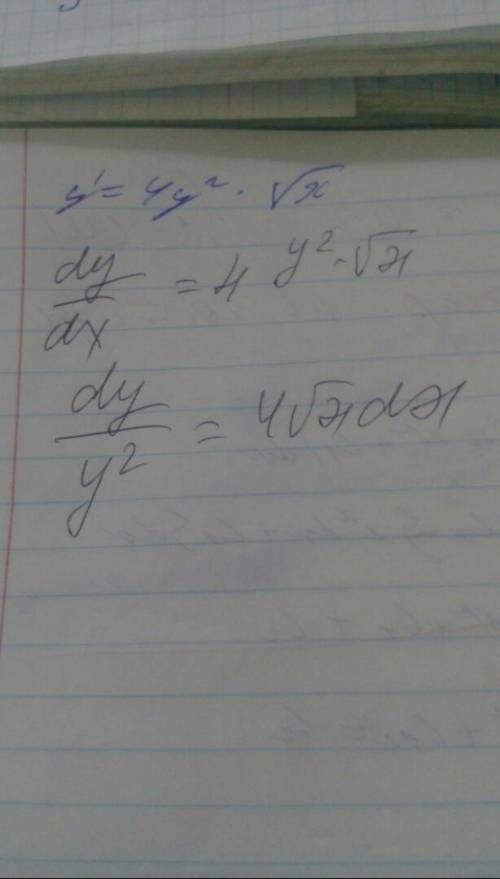 y' = 4y² · √x
dy/dx = 4 y² · √x
dy/y² = 4√x dx